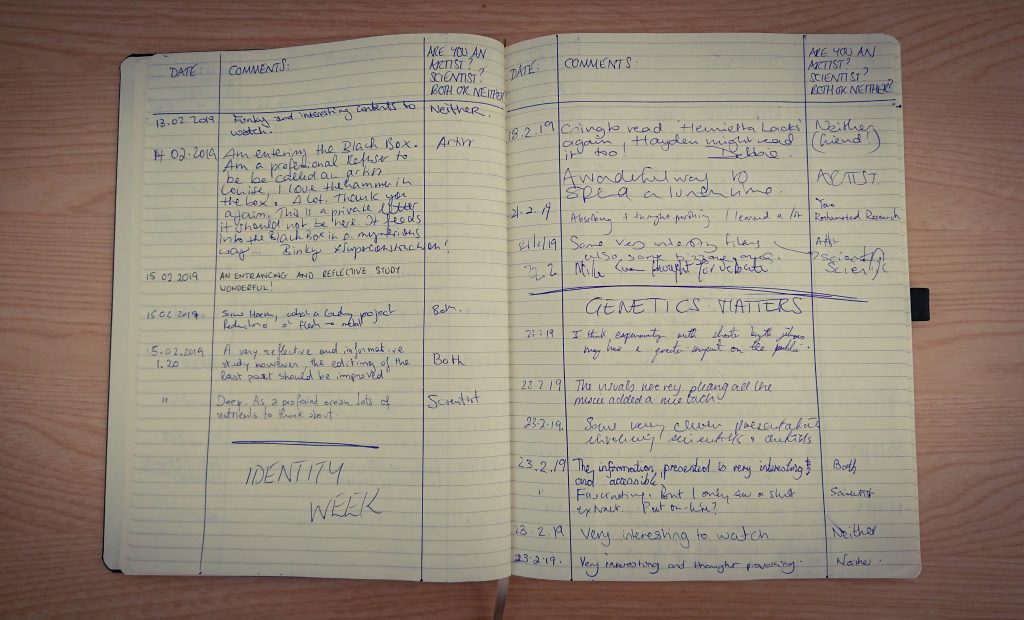 DATE:
COMMENTS:
ARE YOU AN
ARTIST?
SCIENTIST?
BOTH OR NEITHER
13.02.2019
Funky and interesting contents to
watch.
Neither.
14 02.2019
Am entering the Black Box.
Am a professional Refuser to
be be called an artist
Louise, I love the hammer in
the box. A lot. Thank you
again. This is a private letter
it should not be here. It feeds
into the Black Box in a mysterious
way... Binky
Artist
15.02.2019
AN ENTRANCING AND REFLECTIVE STUDY.
WONDERFUL!
15.02.2019.
what a project
of flesh
Both.
15.02.2019
1.20
A very reflective and informative
study however, the editing of the
last part should be improved
Both
"
Deep. As a profound ocean. Lots of
nutrients to think about.
Scientist
IDENTITY
WEEK
DATE:
COMMENTS:
ARE YOU AN
ARTIST?
SCIENTIST?
BOTH OR NEITHER?
18.2.19
Going to read 'Henrietta Lacks'
again, Hayden might read
it too!
Neither
(friend!)
A wonderful way to
spend a lunch time.
ARTIST.
21.2.19
Absorbing + thought provoking. I learned a lot
Rothamsted Research
21/2/19
Some very interesting films
also some bizarre ones.
Scientist
22.2
for debate
Scientific
GENETICS MATTERS
23.2.19
I think experimenting with shorter
may have a greater impact on the public.
23.2.19
The visuals were very pleasing all the
music added a nice touch
23.2.19.
Some very clever presentations
involving scientists & artists
23.2.19
The information presented is very interesting
and accessible
Both
"
Fascinating. But I only saw a short
extract. Put on-line?
Scientist
23.2.19
Very interesting to watch
Neither
23.2.19.
Very interesting and thought provoking.
Neither.